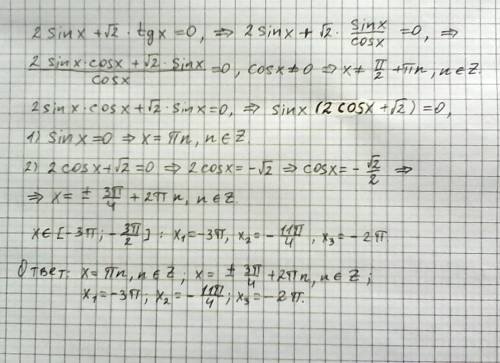 2 sinx + √2 · tgx = 0, ⇒ 2 sinx + √2 · sinx/cosx = 0, ⇒
(2 sinx · cosx + √2 · sinx)/cosx = 0, cosx ≠ 0 ⇒ x ≠ π/2 + πn, n ∈ Z.
2 sinx · cosx + √2 · sinx = 0, ⇒ sinx (2 cosx + √2) = 0,
1) sinx = 0 ⇒ x = πn, n ∈ Z.
2) 2 cosx + √2 = 0 ⇒ 2 cosx = -√2 ⇒ cosx = -√2/2 ⇒
⇒ x = ± 3π/4 + 2πn, n ∈ Z.
x ∈ [-3π; -3π/2] : x₁ = -3π, x₂ = -11π/4, x₃ = -2π.
Ответ: x = πn, n ∈ Z ; x = ± 3π/4 + 2πn, n ∈ Z ;
x₁ = -3π ; x₂ = -11π/4 ; x₃ = -2π.